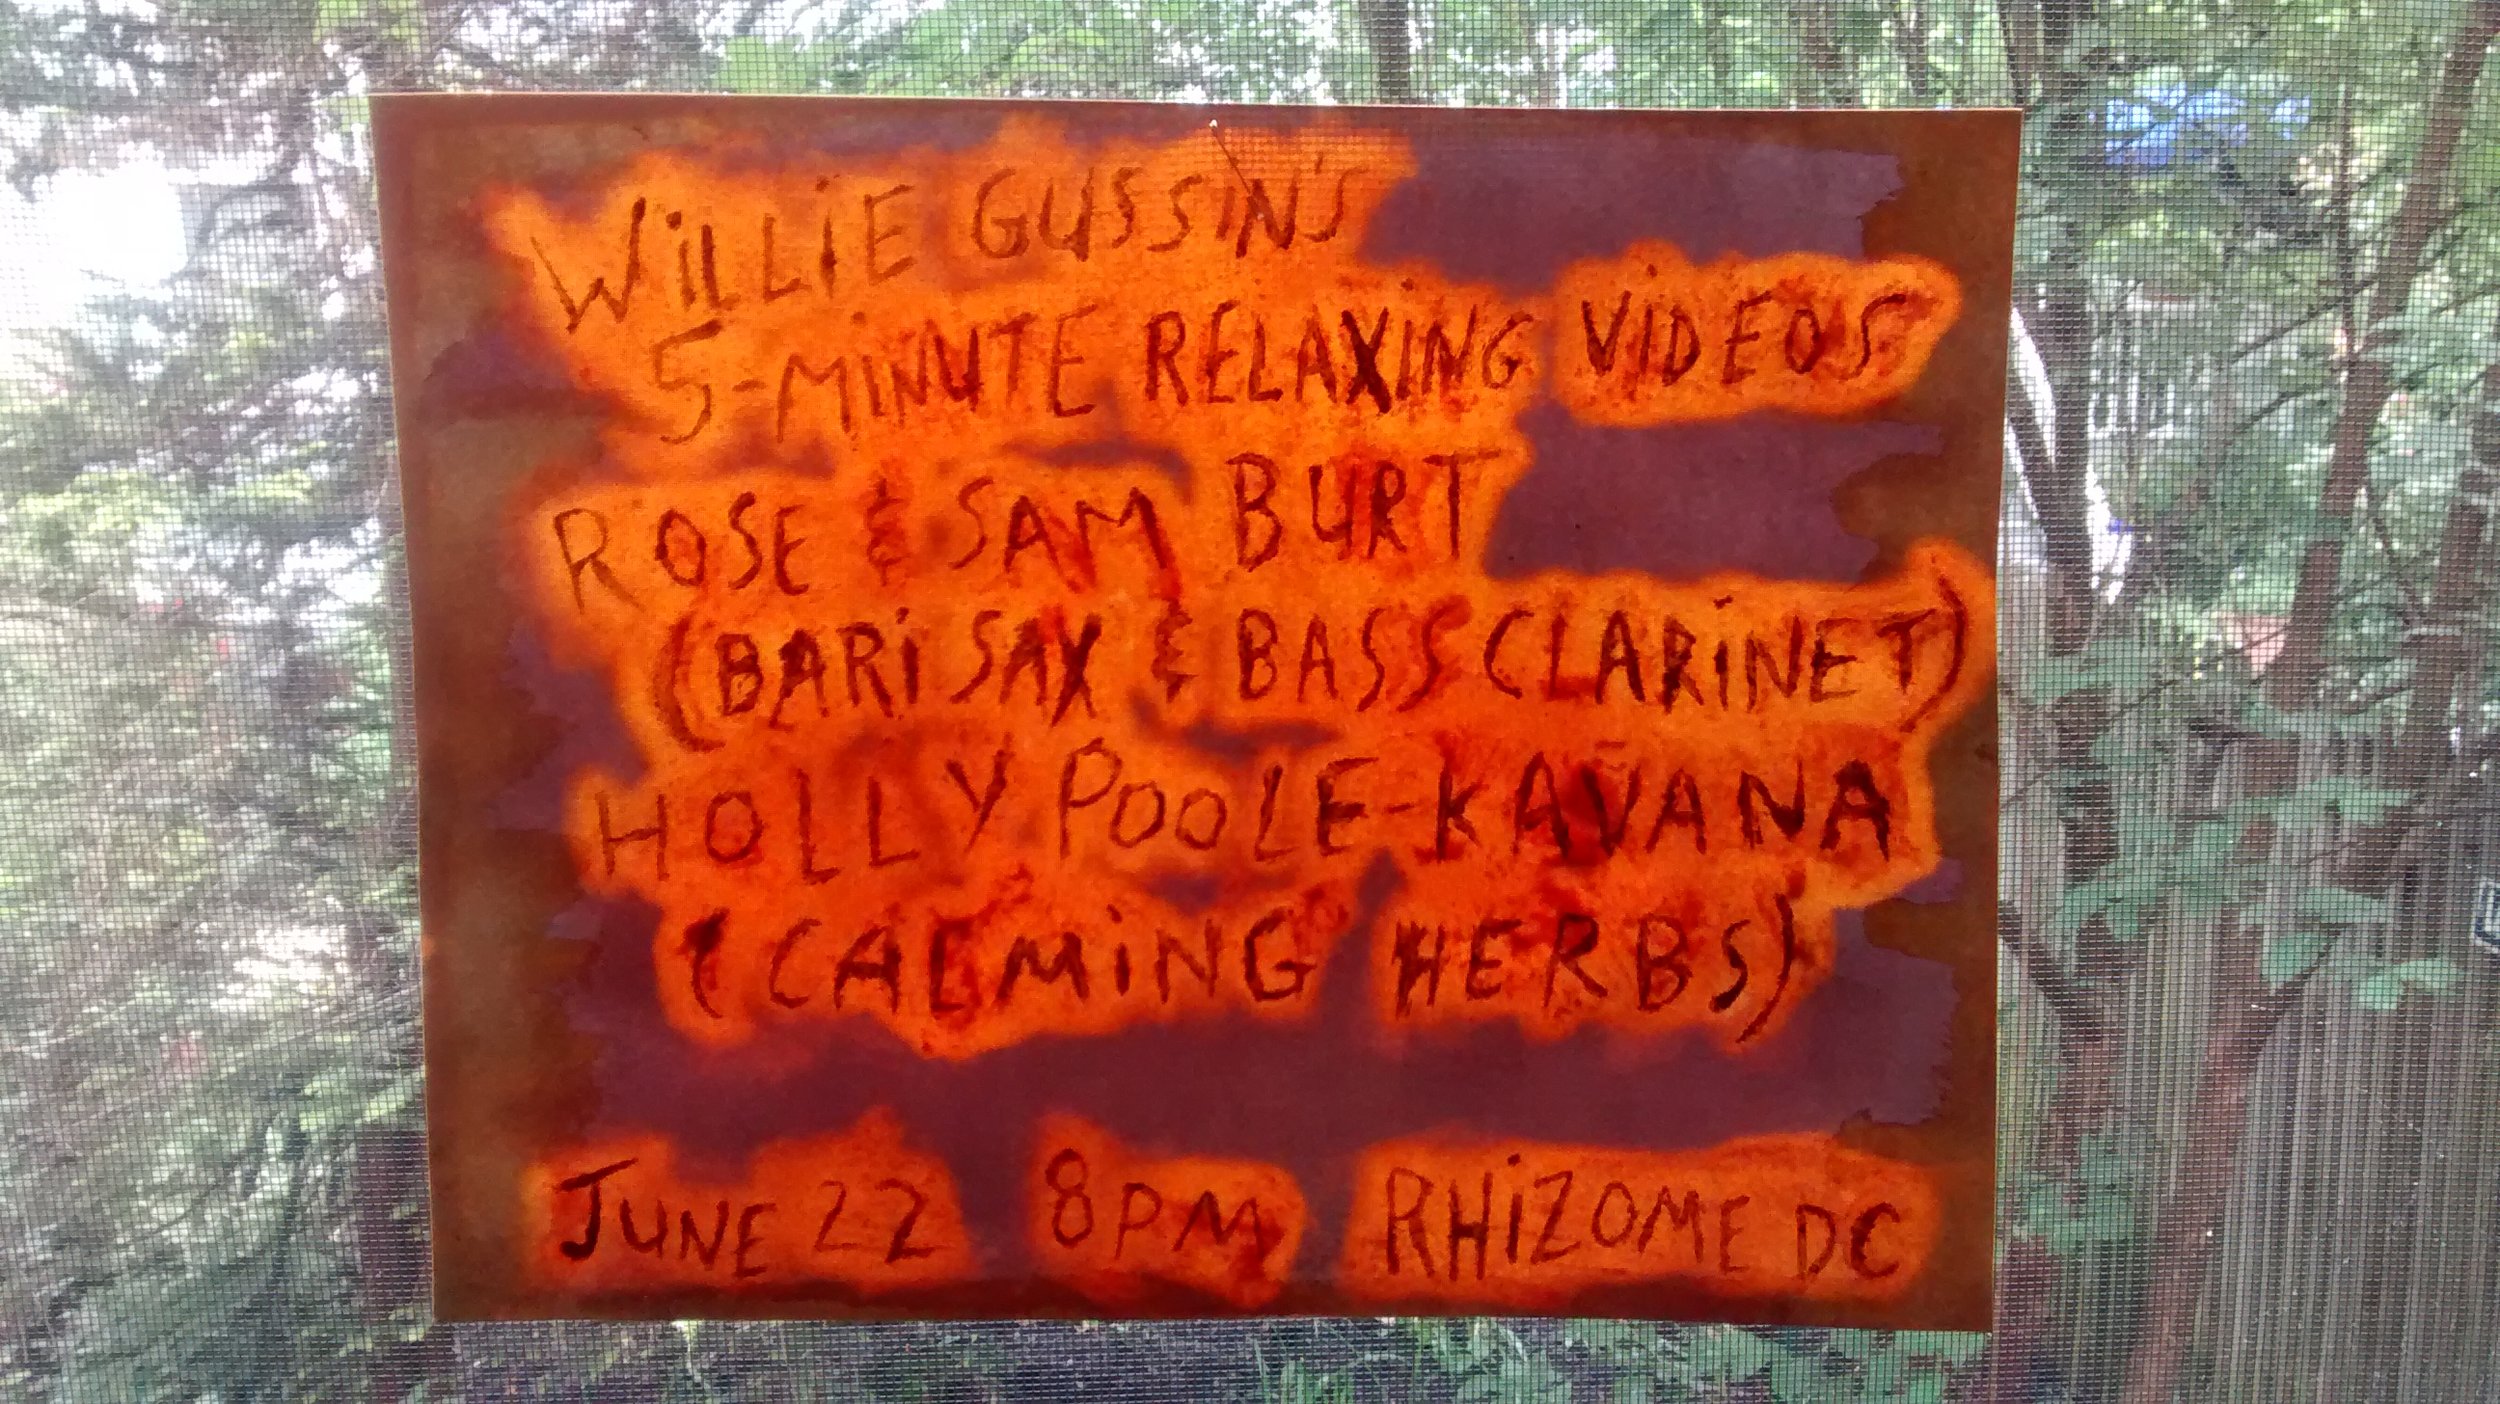 WILLIE GUSSIN'S
5-MINUTE RELAXING VIDEOS
ROSE & SAM BURT
(BARI SAX & BASS CLARINET)
HOLLY POOLE-KAVANA
(CALMING HERBS)
JUNE 22 8PM RHIZOME DC